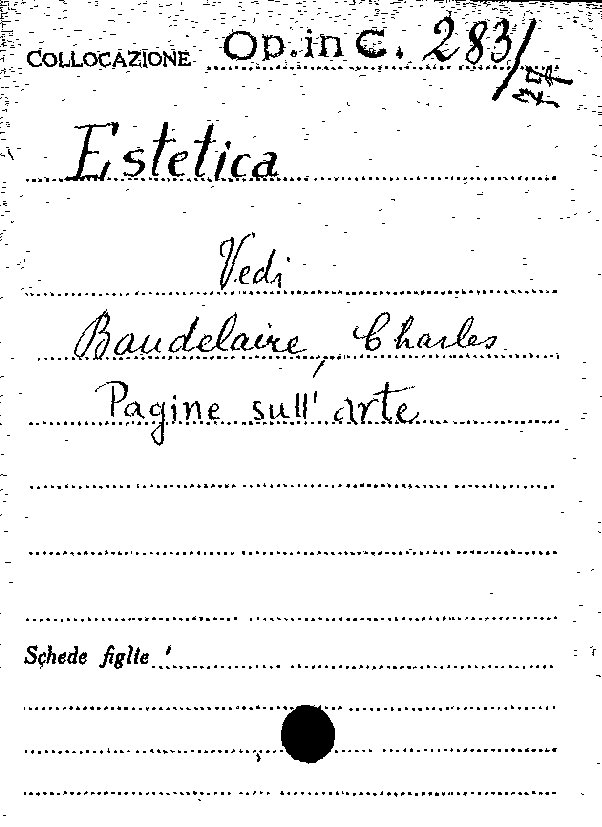 COLLOCAZIONE Op. in C. 283/
77
Estetica
Vedi
Baudelaire, Charles
Pagine sull'arte
Schede figlie